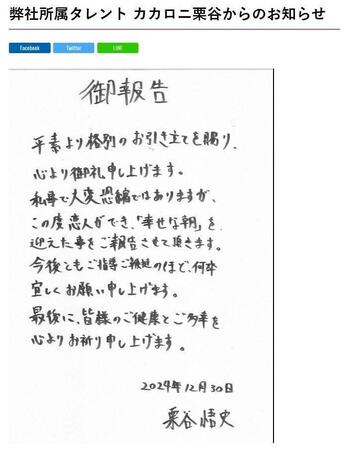 弊社所属タレント カカロニ栗谷からのお知らせ
Facebook
Twitter
LINE
御報告
平素より格別のお引き立てを賜り、
心より御礼申し上げます。
私事で大変恐縮ではありますが、
この度恋人ができ、「幸せな朝」を、
迎えた事をご報告させて頂きます。
今後ともご指導ご鞭撻のほど、何卒
宜しくお願い申し上げます。
最後に、皆様のご健康とご多幸を
心よりお祈り申し上げます。
2024年12月30日
栗谷悟史